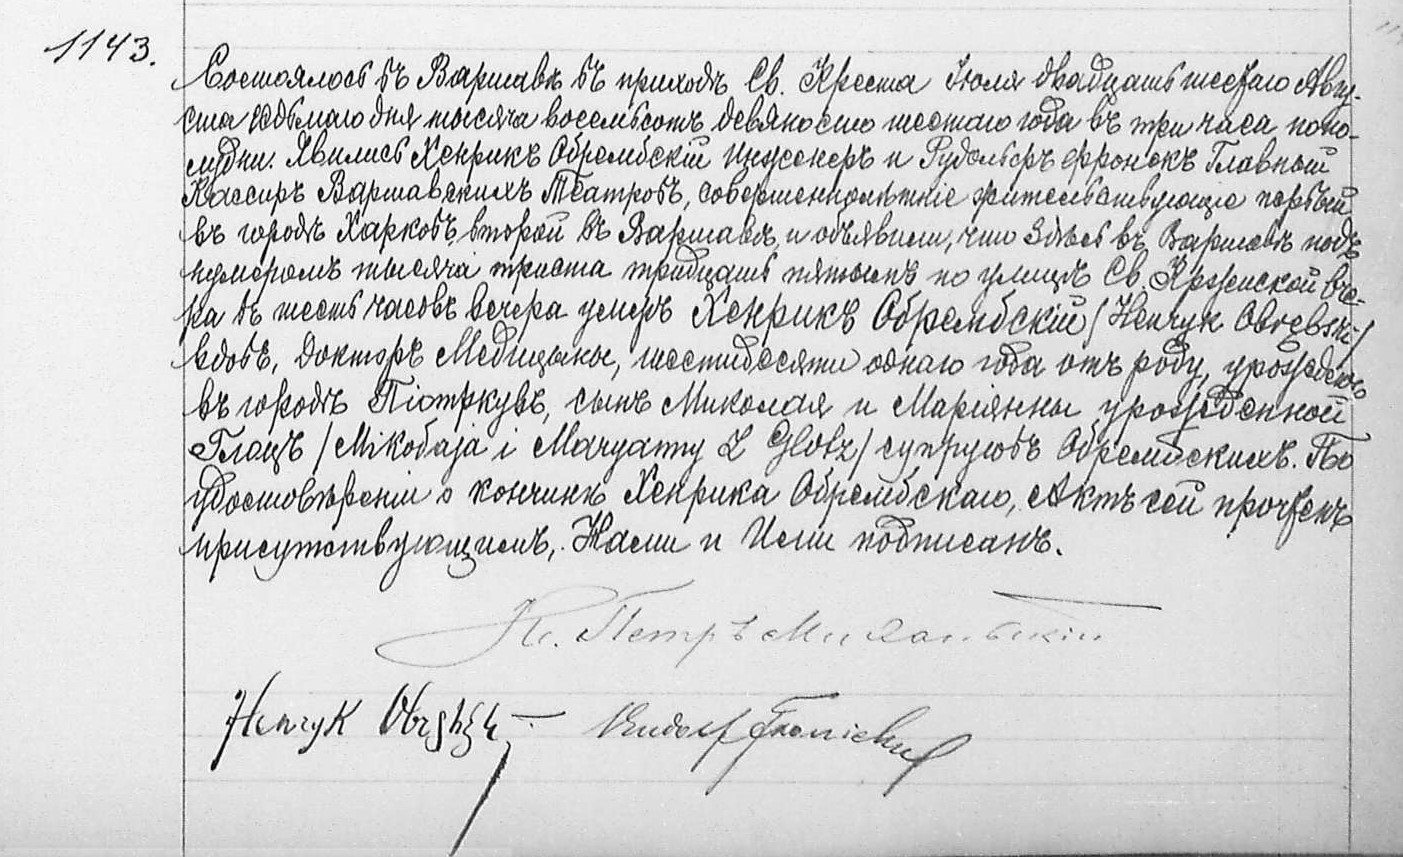 1143.
Состоялось въ Варшавѣ въ приходѣ Св. Креста Іюля двадцать шестаго Авгу-
ста седьмаго дня тысяча восемьсотъ девяносто шестаго года въ три часа попо-
лудни. Явились Хенрикъ Обрембскій Инженеръ и Рудольфъ Главный
Кассиръ Варшавскихъ Театровъ, совершеннолѣтніе жительствующіе первый
въ городѣ Харковѣ второй въ Варшавѣ, и объявили, что здѣсь въ Варшавѣ подъ
нумеромъ тысяча триста тридцать пятымъ по улицѣ Св. Кржиской вче-
ра въ шесть часовъ вечера умеръ Хенрикъ Обрембскій /Henryk Obrębski/
вдовъ, Докторъ Медицины, шестидесяти одного года отъ роду, урожденъ
въ городѣ Піотркувѣ, сынъ Миколая и Маріянны урожденной
Глоцъ /Mikołaja i Maryanny z Glotz/ супруговъ Обрембскихъ. По
удостовѣреніи о кончинѣ Хенрика Обрембскаго, Актъ сей прочтенъ
присутствующимъ, Нами и Ими подписанъ.
Кс. Петръ
Henryk
Rudolf